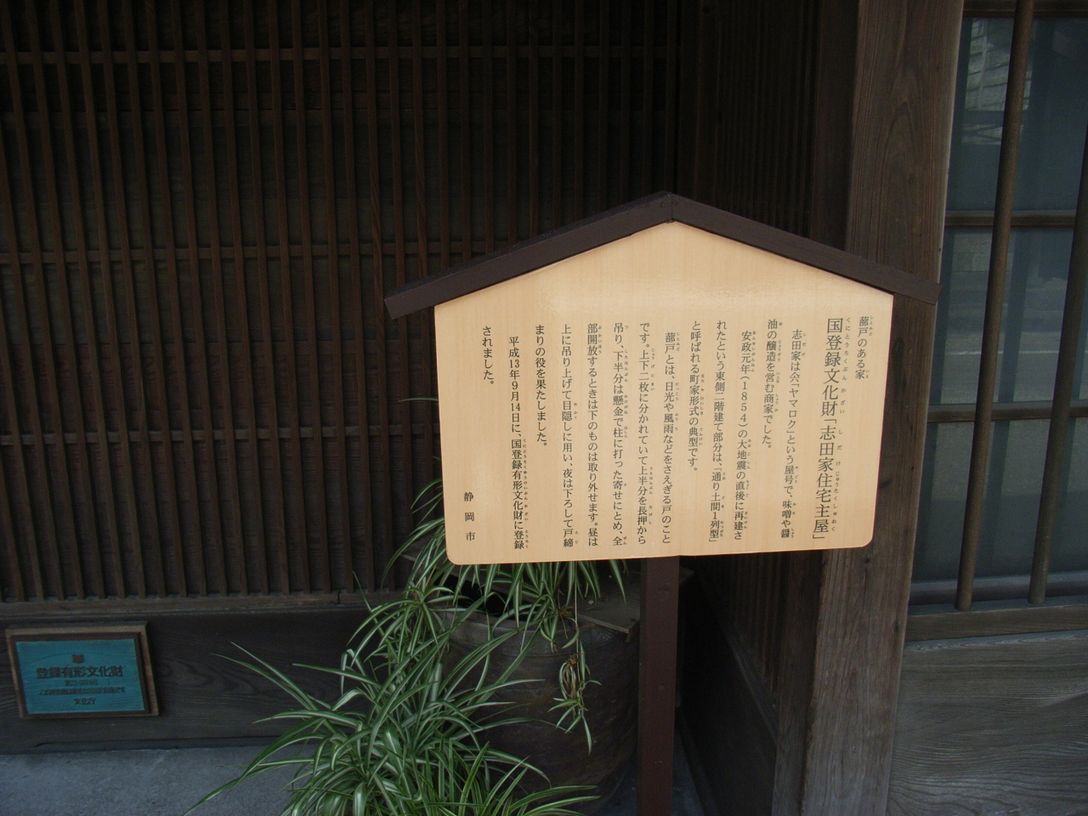 蔀戸のある家
国登録文化財「志田家住宅主屋」
志田家は「ヤマロク」という屋号で、味噌や醤
油の醸造を営む商家でした。
安政元年(1854)の大地震の直後に再建さ
れたという東側二階建て部分は、「通り土間1列型」
と呼ばれる町家形式の典型です。
蔀戸とは、日光や風雨などをさえぎる戸のこと
です。上下二枚に分かれていて上半分を長押から
吊り、下半分は懸金で柱に打った寄せにとめ、全
部開放するときは下のものは取り外せます。昼は
上に吊り上げて目隠しに用い、夜は下ろして戸締
まりの役を果たしました。
平成13年9月14日に、国登録有形文化財に登録
されました。
静岡市
登録有形文化財
文化庁